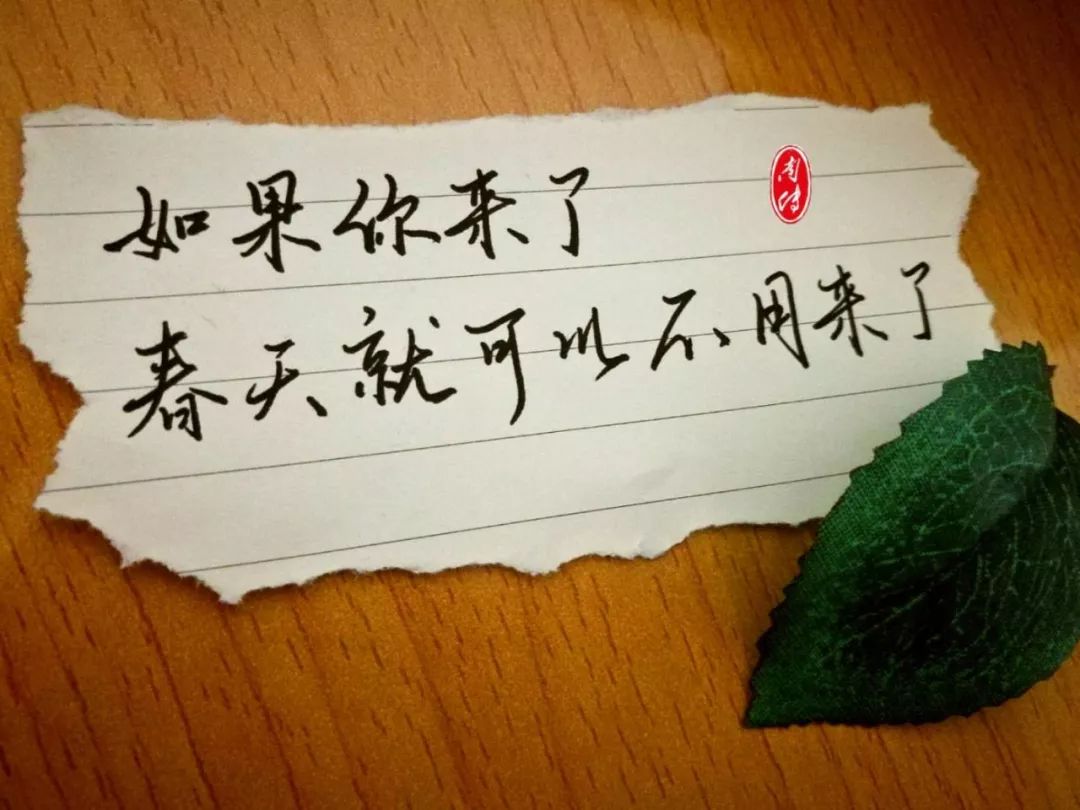 如果你来了
春天就可以不用来了